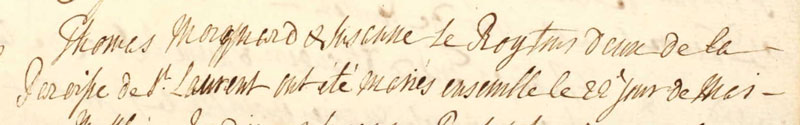 Thomas Morguard & Susanne Le Roy tous deux de la
Paroisse de St. Laurent ont été mariés ensemble le 22e Jour de Mai